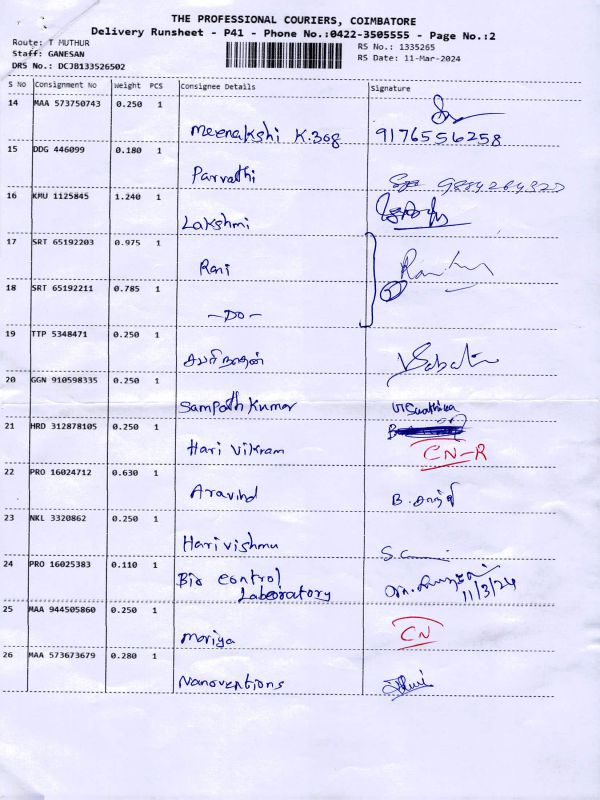 THE PROFESSIONAL COURIERS, COIMBATORE
Delivery Runsheet - P41 - Phone No.:0422-3505555 - Page No.:2
Route: T MUTHUR
RS No.: 1335265
Staff: GANESAN
RS Date: 11-Mar-2024
DRS No.: DCJB133526502
S No Consignment No Weight PCS Consignee Details Signature
14 MAA 573750743 0.250 1
Meenakshi K.308 9176556258
15 DDG 446099 0.180 1
Parvathi
16 KMU 1125845 1.240 1
Lakshmi
17 SRT 65192203 0.975 1
Rani
18 SRT 65192211 0.785 1
-DO-
19 TTP 5348471 0.250 1
சபரிநாதன்
20 GGN 910598335 0.250 1
Sampath Kumar
21 HRD 312878105 0.250 1
Hari Vikram CN-R
22 PRO 16024712 0.630 1
Aravind
23 NKL 3320862 0.250 1
Hari vishnu
24 PRO 16025383 0.110 1
Bio control
Laboratory 11/3/24
25 MAA 944505860 0.250 1
Moriya CN
26 MAA 573673679 0.280 1
Nanoventions